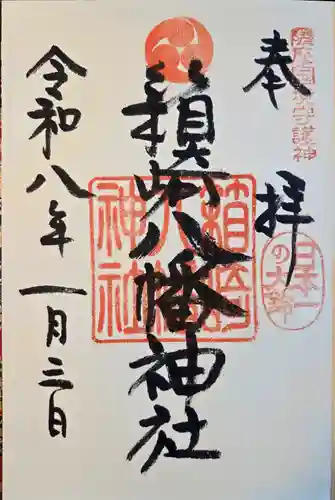 奉拝
薩摩国出水守護神
日本一の大鈴
箱崎八幡神社
箱崎八幡神社
令和八年一月三日